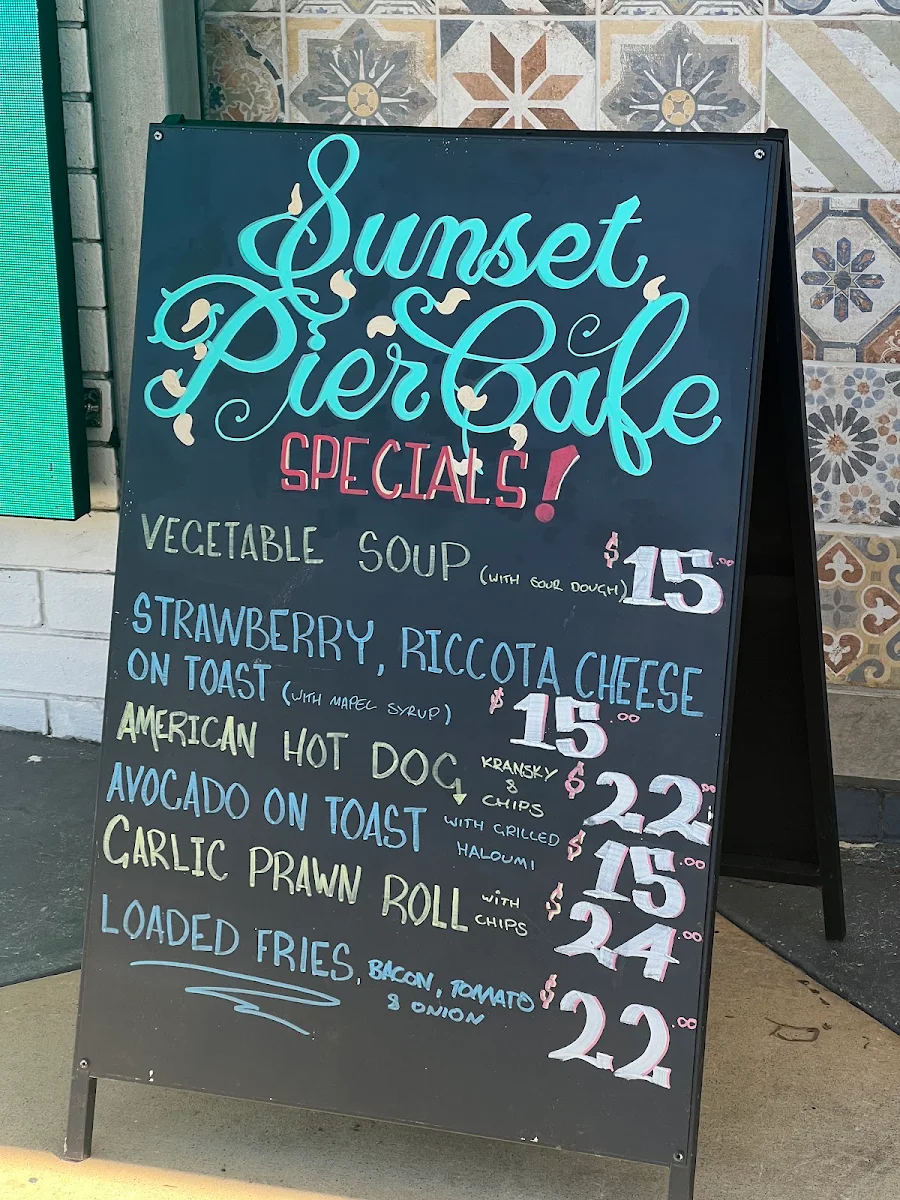 Sunset
Pier Cafe
SPECIALS!
VEGETABLE SOUP (WITH SOUR DOUGH) $15.00
STRAWBERRY, RICCOTA CHEESE
ON TOAST (WITH MAPEL SYRUP) $15.00
AMERICAN HOT DOG, KRANSKY & CHIPS $22.00
AVOCADO ON TOAST WITH GRILLED HALOUMI $15.00
GARLIC PRAWN ROLL WITH CHIPS $24.00
LOADED FRIES, BACON, TOMATO & ONION $22.00